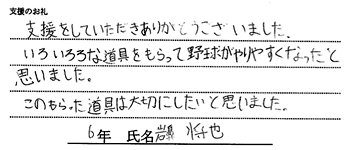 支援のお礼
支援をしていただきありがとうございました。
いろいろな道具をもらって野球がやりやすくなったと
思いました。
このもらった道具は大切にしたいと思いました。
6年 氏名 将也